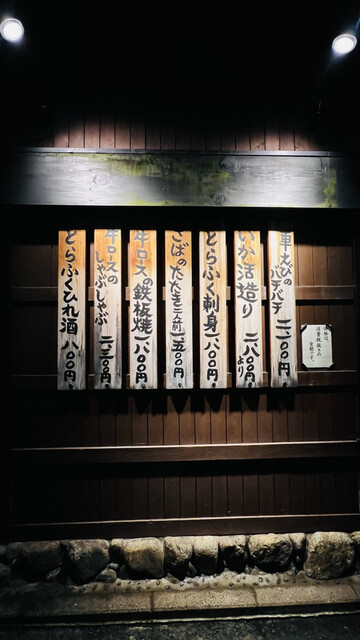 車えびの
バチバチ
いか活造り
二、八〇〇円より
とらふく刺身
一、八〇〇円
さばのたたき
一、五〇〇円
牛ロースの鉄板焼
一、八〇〇円
牛ロースの
しゃぶしゃぶ
二、三〇〇円
とらふくひれ酒
八〇〇円
消費税抜きの
金額です。